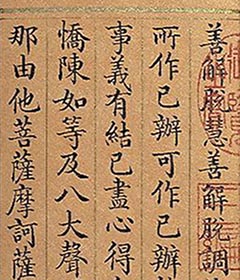 善解脫慧善解脫調
所作已辦可作已辦
事義有結已盡心得
憍陳如等及八大聲
那由他菩薩摩訶薩